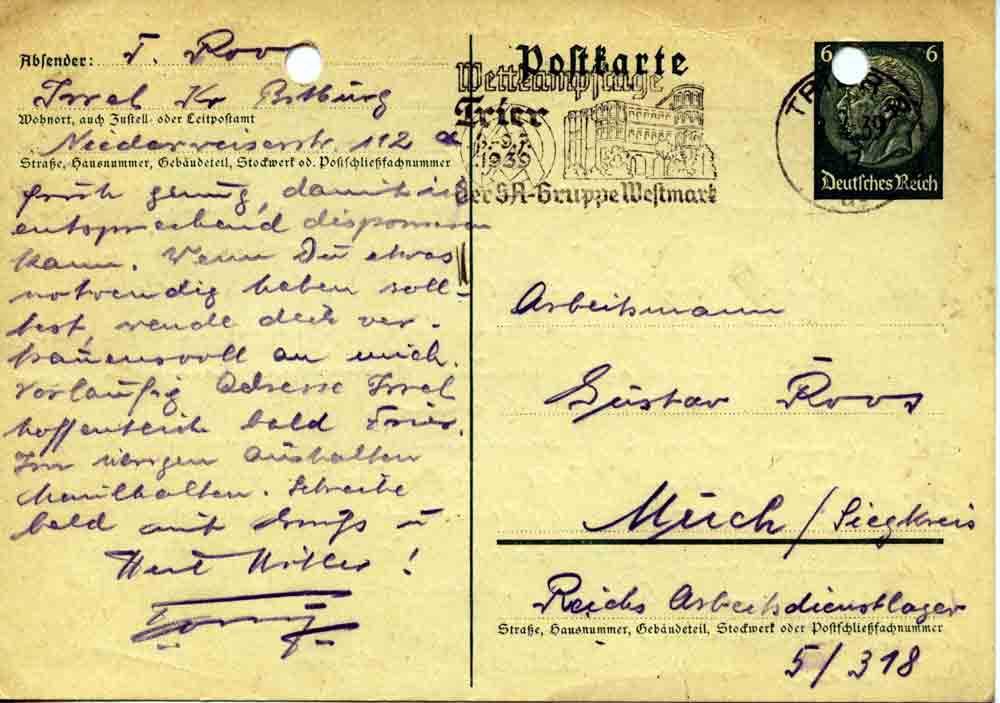 Postkarte
Absender: T. Roo
Irrel Kr Bitburg
Wohnort, auch Zustell- oder Leitpostamt
Niederweiserstr 112 a
Straße, Hausnummer, Gebäudeteil, Stockwerk od. Postschließfachnummer
früh genug, damit ich
entsprechend disponieren
kann. Wenn Du etwas
notwendig haben soll-
test, wende dich ver-
trauensvoll an mich.
Vorläufig Adresse Irrel
hoffentlich bald Trier.
Im übrigen Aushalten
Maulhalten. Schreibe
bald mit Gruß u
Heil Hitler!
Wettkampftage
Trier
1939
der SA-Gruppe Westmark
6 6
Deutsches Reich
TRIER
Arbeitsmann
Gustav Roos
Much / Siegkreis
Reichs Arbeitsdienstlager
Straße, Hausnummer, Gebäudeteil, Stockwerk oder Postschließfachnummer
5/318